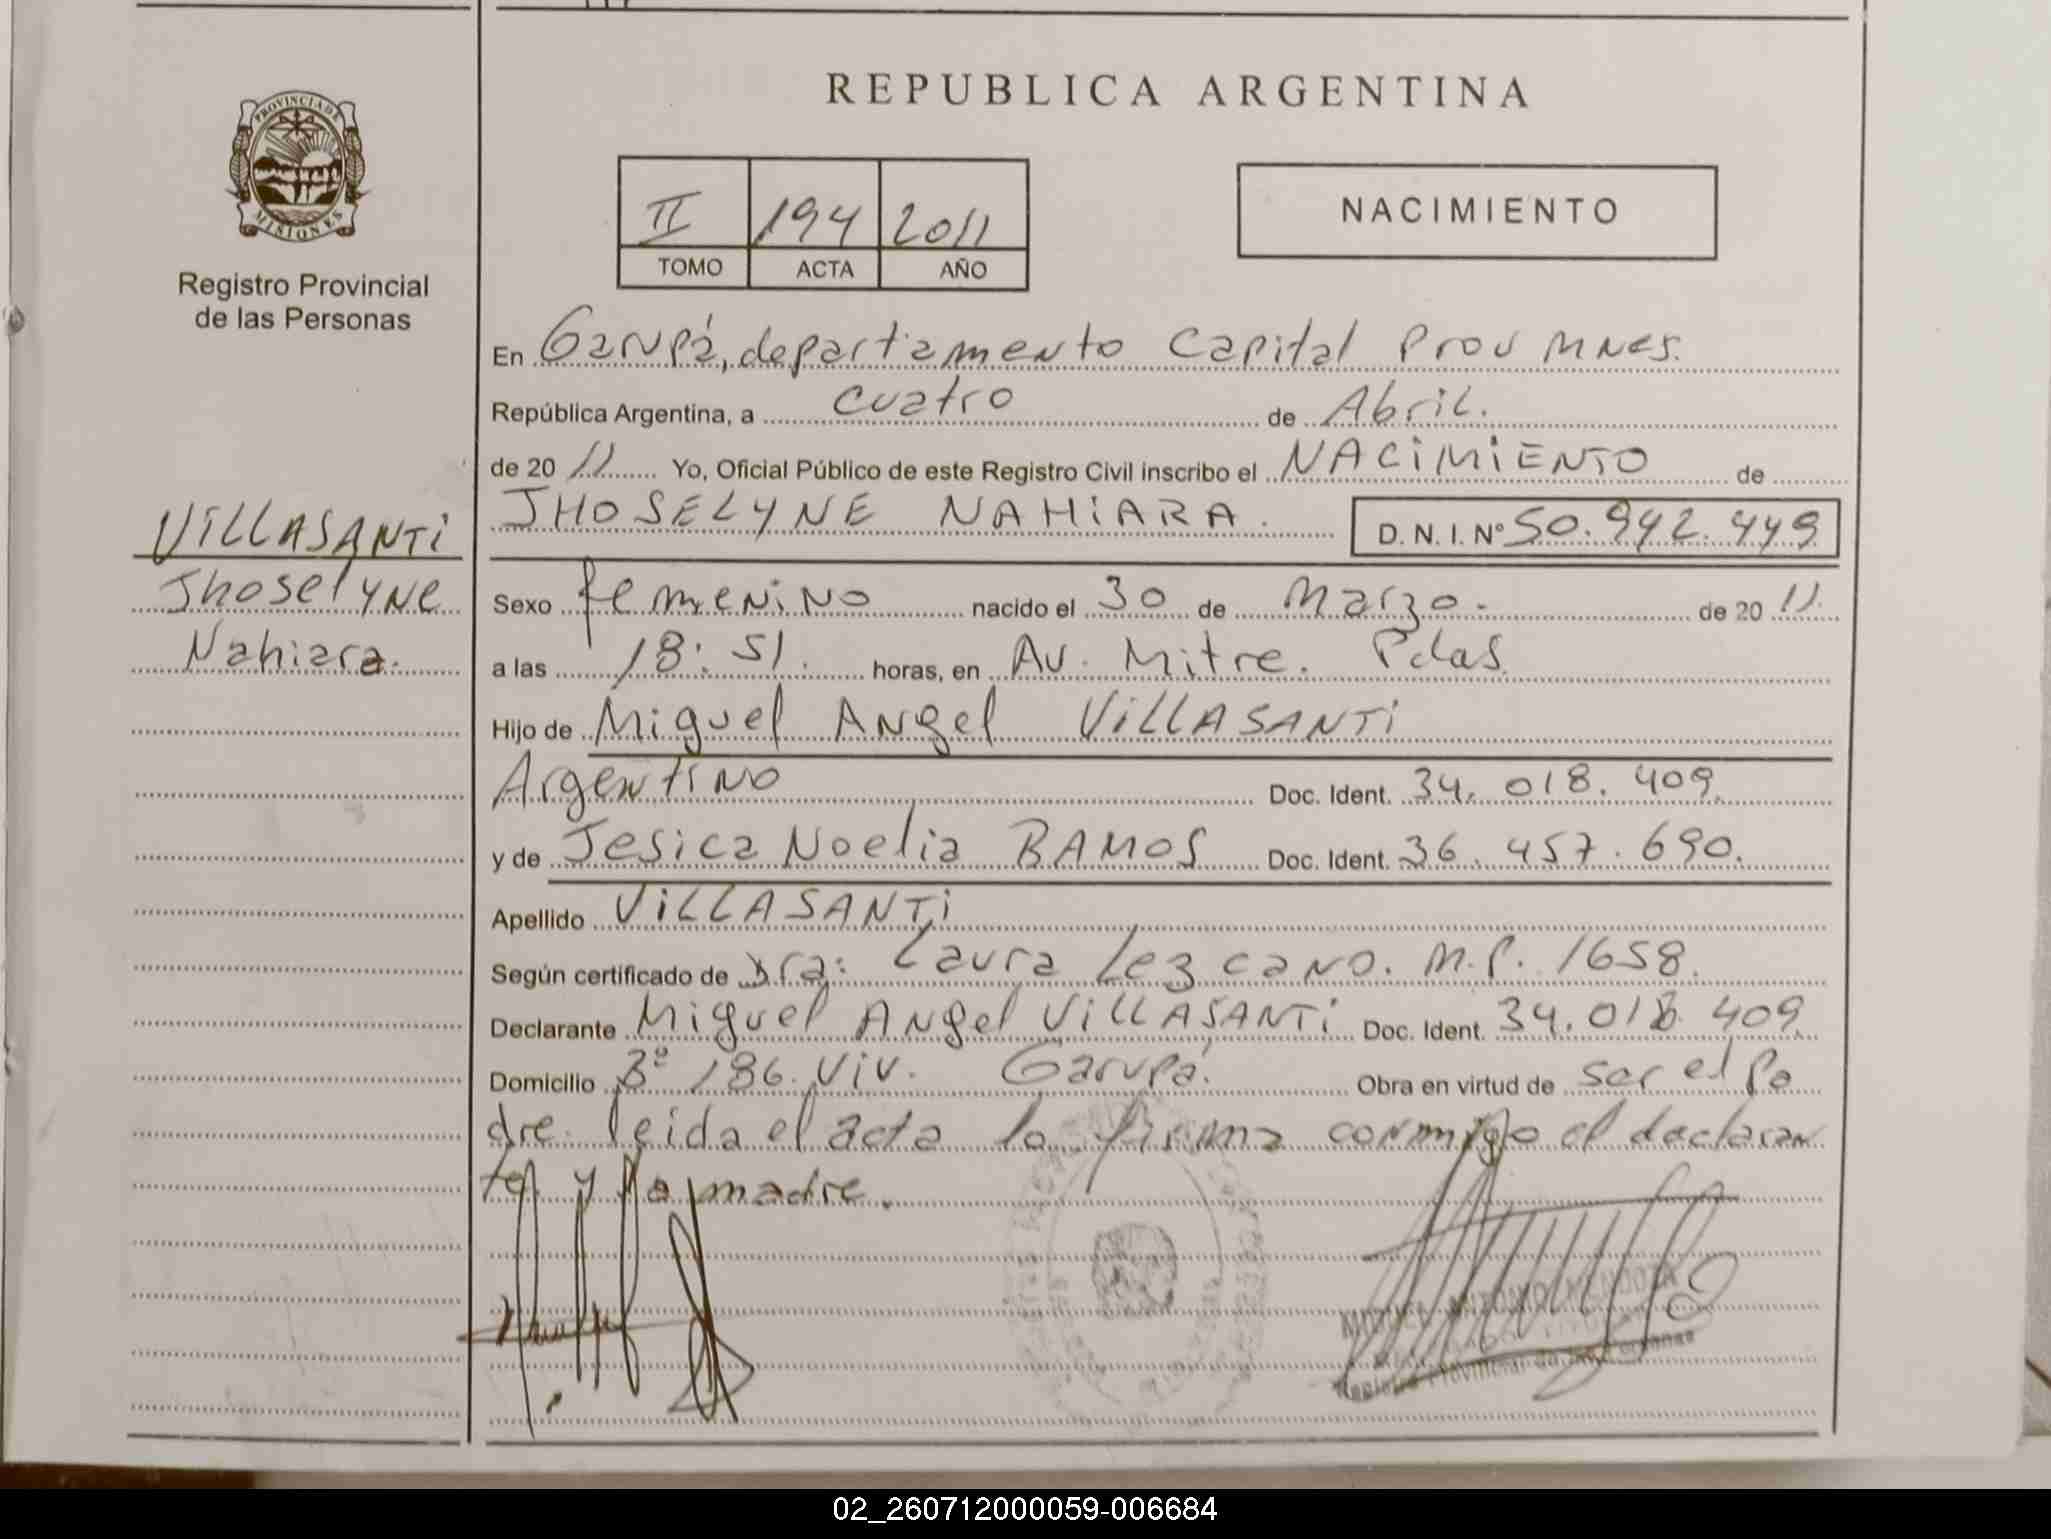 PROVINCIA DE
MISIONES
Registro Provincial
de las Personas
VILLASANTI
Jhoselyne
Nahiara.
REPUBLICA ARGENTINA
II 194 2011
TOMO ACTA AÑO
NACIMIENTO
En Garupá, departamento Capital Prov Mnes.
República Argentina, a cuatro de Abril.
de 20 11 Yo, Oficial Público de este Registro Civil inscribo el NACIMIENTO de
JHOSELYNE NAHIARA. D. N. I. Nº 50.942.449
Sexo femenino nacido el 30 de Marzo. de 20 11.
a las 18:51. horas, en Av. Mitre. Pdas.
Hijo de Miguel Angel VILLASANTI
Argentino Doc. Ident. 34.018.409.
y de Jesica Noelia RAMOS Doc. Ident. 36.457.690.
Apellido VILLASANTI
Según certificado de Dra: Laura Lezcano. M.P. 1658.
Declarante Miguel Angel VILLASANTI Doc. Ident. 34.018.409.
Domicilio Bº 186 Viv. Garupá. Obra en virtud de ser el pa
dre. leida el acta la firma conmigo el declaran
te y la madre.
ANTONIO MENDOZA
Registro Provincial de las Personas
02_260712000059-006684